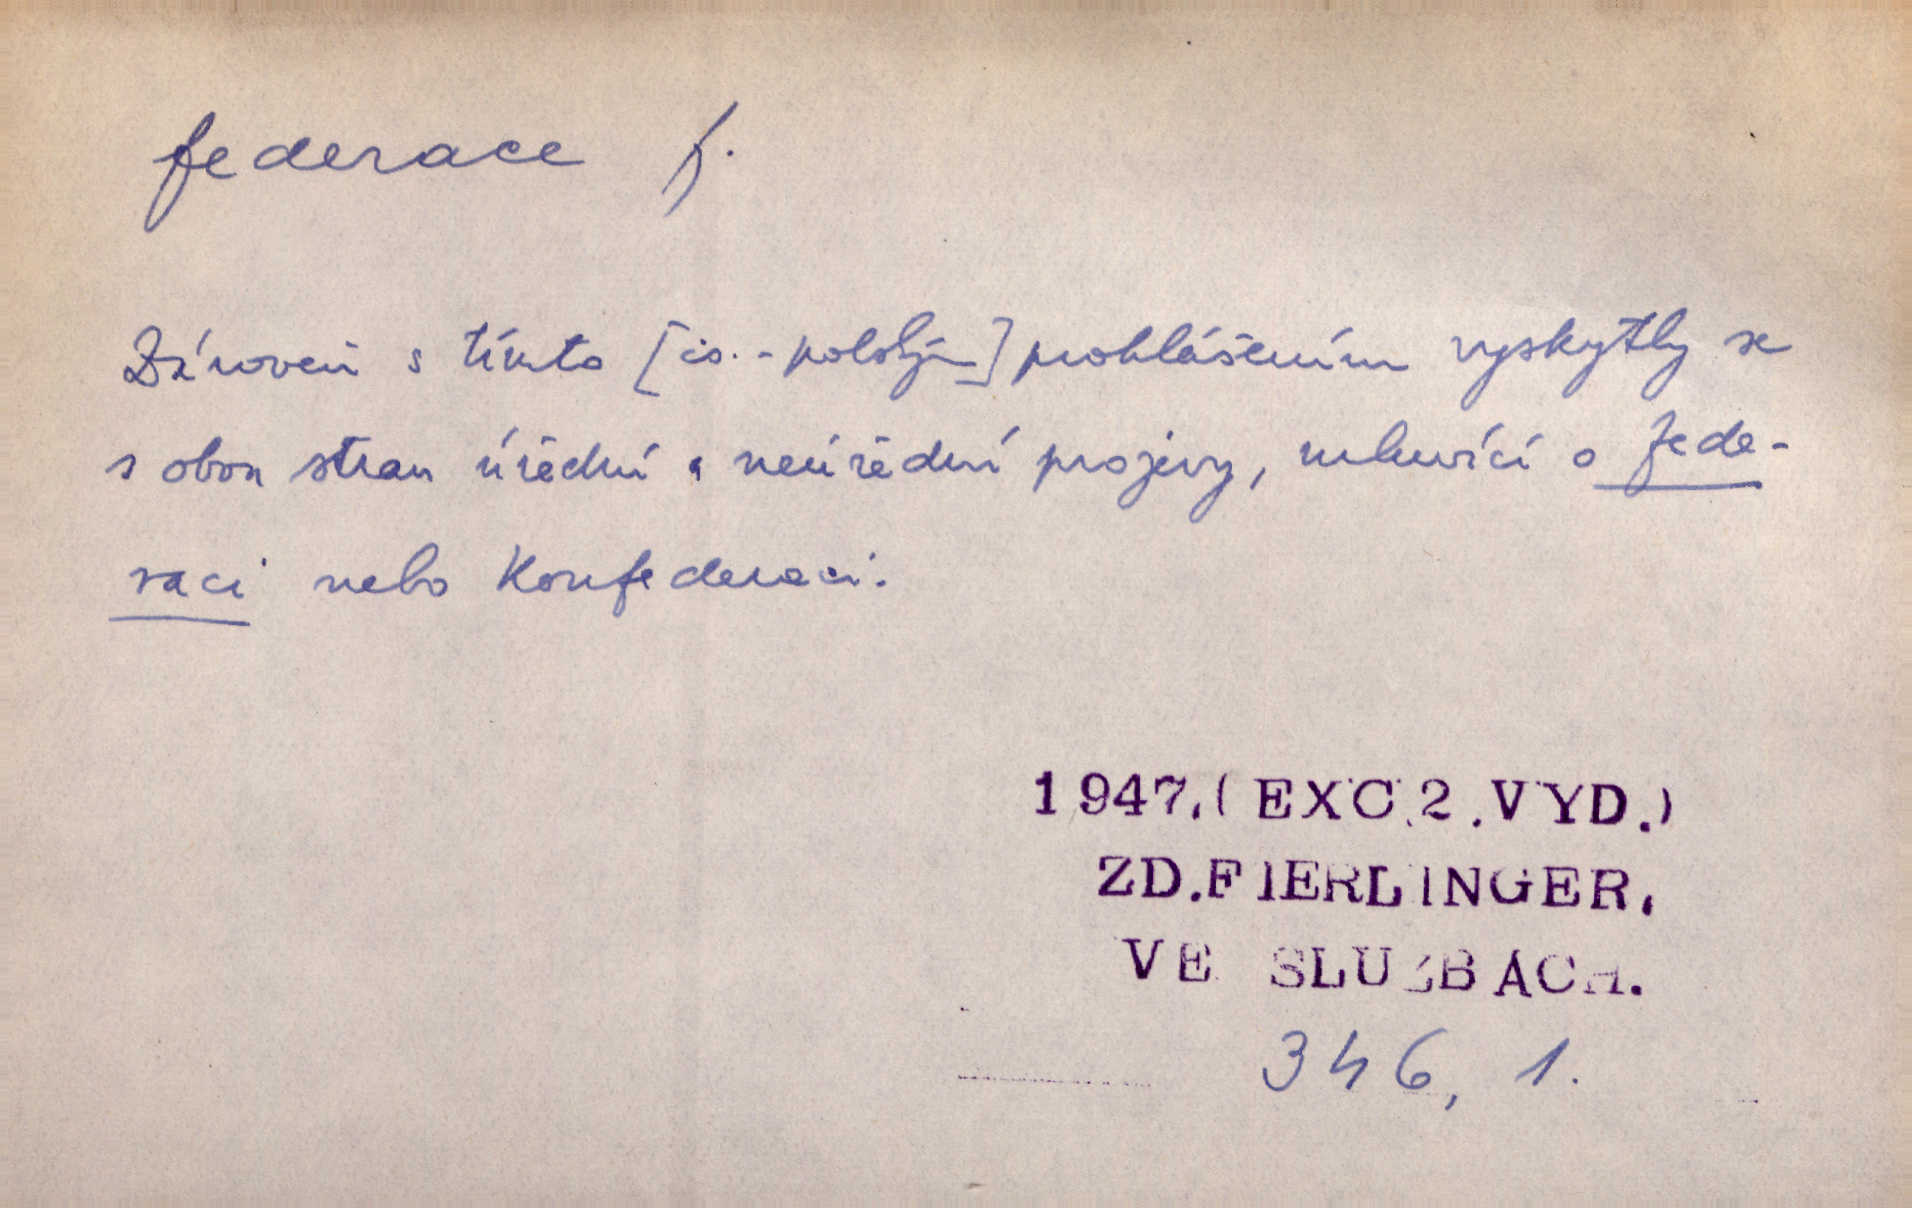 federace f.
Zároveň s tímto [čs.-polským] prohlášením vyskytly se
s obou stran úřední a neúřední projevy, mluvící o fede-
raci nebo konfederaci.
1947.(EXC.2.VYD.)
ZD.FIERLINGER,
VE SLUŽBÁCH.
346, 1.